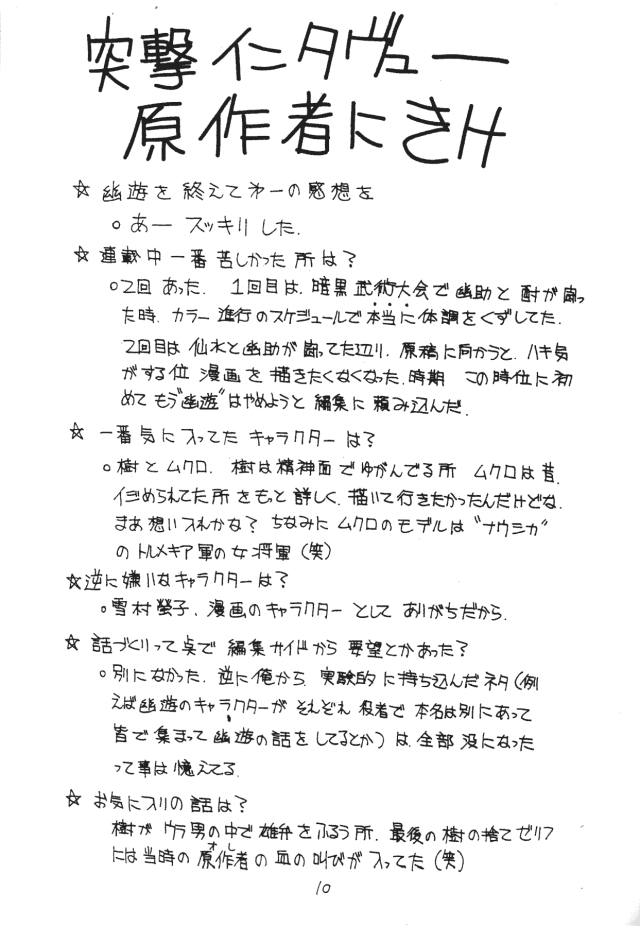 突撃インタヴュー
原作者にきけ
☆ 幽遊を終えて第一の感想を
○ あー スッキリした.
☆ 連載中一番苦しかった所は？
○2回あった. 1回目は. 暗黒武術大会で幽助と酎が闘っ
た時. カラー進行のスケジュールで本当に体調をくずしてた.
2回目は仙水と幽助が闘ってた辺り. 原稿に向かうと. ハキ気
がする位漫画を描きたくなくなった時期 この時位に初
めてもう“幽遊”はやめようと編集に頼み込んだ.
☆ 一番気に入ってたキャラクターは？
○ 樹とムクロ. 樹は精神面でゆがんでる所 ムクロは昔.
イジめられてた所をもっと詳しく. 描いて行きたかったんだけどな.
まあ想い入れかな？ ちなみにムクロのモデルは“ナウシカ”
のトルメキア軍の女将軍（笑）
☆逆に嫌いなキャラクターは？
○ 雪村螢子. 漫画のキャラクターとしてありがちだから.
☆ 話づくりって点で編集サイドから要望とかあった？
○ 別になかった. 逆に俺から. 実験的に持ち込んだネタ（例
えば幽遊のキャラクターがそれぞれ役者で本名は別にあって
皆で集まって幽遊の話をしてるとか）は. 全部没になった
って事は憶えてる.
☆ お気に入りの話は？
樹がウラ男の中で雄弁をふるう所. 最後の樹の捨てゼリフ
には当時の原作者の血の叫びが入ってた（笑）
オレ
10